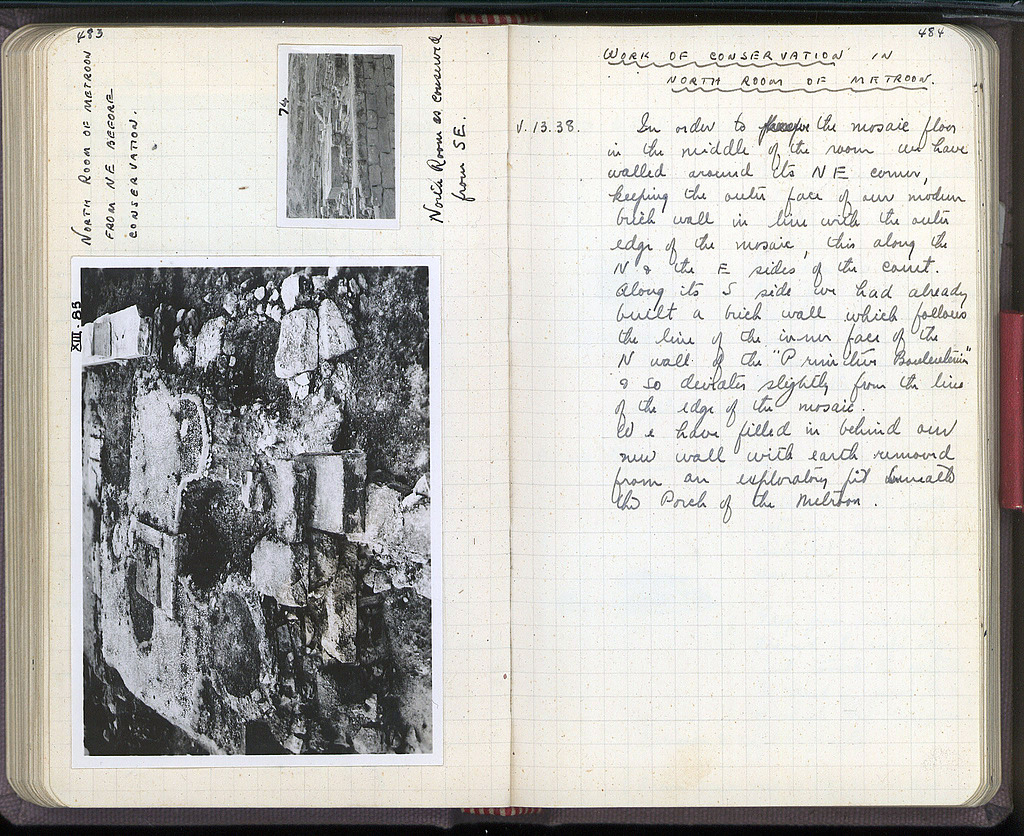 483
NORTH ROOM OF METROON
FROM NE BEFORE
CONSERVATION.
74
North Room as conserved
from SE.
XIII. 85
484
WORK OF CONSERVATION IN
NORTH ROOM OF METROON.
V. 13. 38. In order to the mosaic floor
in the middle of the room we have
walled around its NE corner,
keeping the outer face of our modern
brick wall in line with the outer
edge of the mosaic, this along the
N & the E sides of the court.
Along its S side we had already
built a brick wall which follows
the line of the inner face of the
N wall of the "Primitive Bouleuterion"
& so deviates slightly from the line
of the edge of the mosaic.
We have filled in behind our
new wall with earth removed
from an exploratory pit beneath
the Porch of the Metroon.